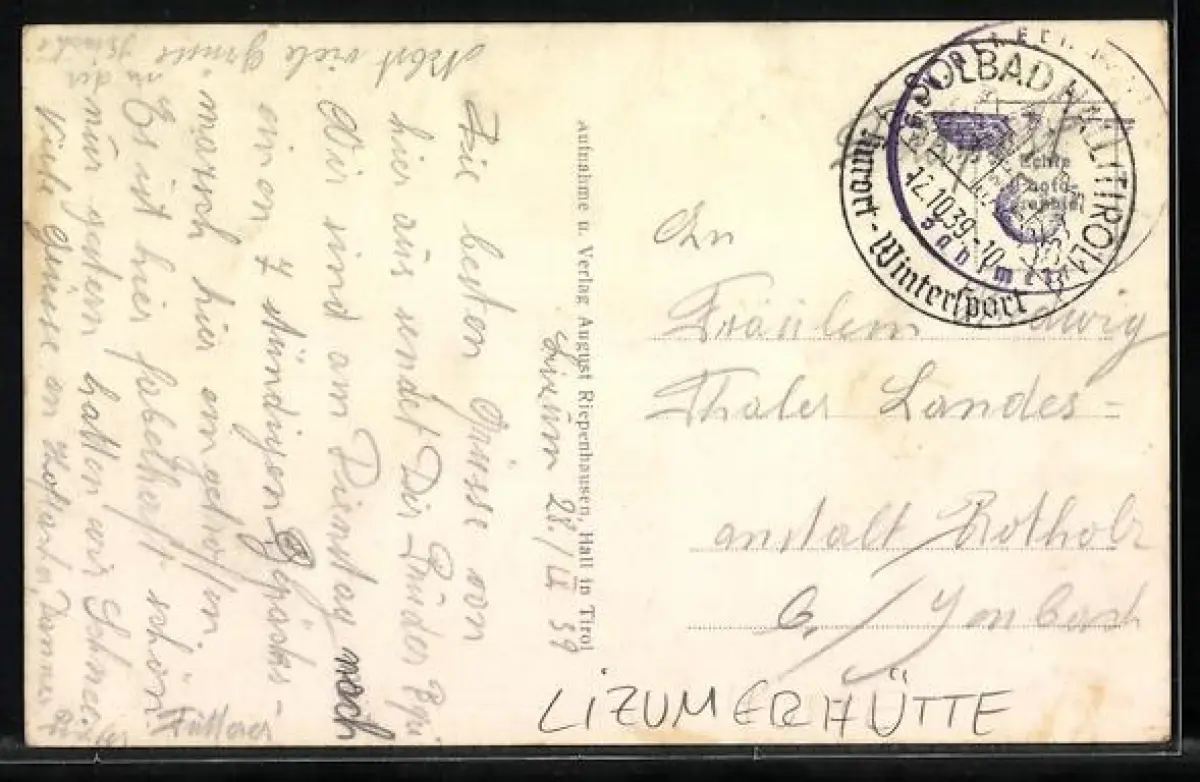 Lizum 28./IX 39
Die besten Grüsse von
hier aus sendet Dir Bruder
Wir sind am Dienstag nach
einen 7 stündigen Gepäcks-
marsch hier angetroffen
Es ist hier fabelhaft schön
nur gestern hatten wir Schnee
Viele grüsse an
Nebst viele Grüsse
Aufnahme u. Verlag August Riepenhausen, Hall in Tirol
SOLBAD HALL (TIROL)
12.10.39-10
Wintersport
Echte
Photo-
graphie
An
Fräulein Hedwig
Thaler Landes-
anstalt Rotholz
b./Jenbach
LIZUMERHÜTTE